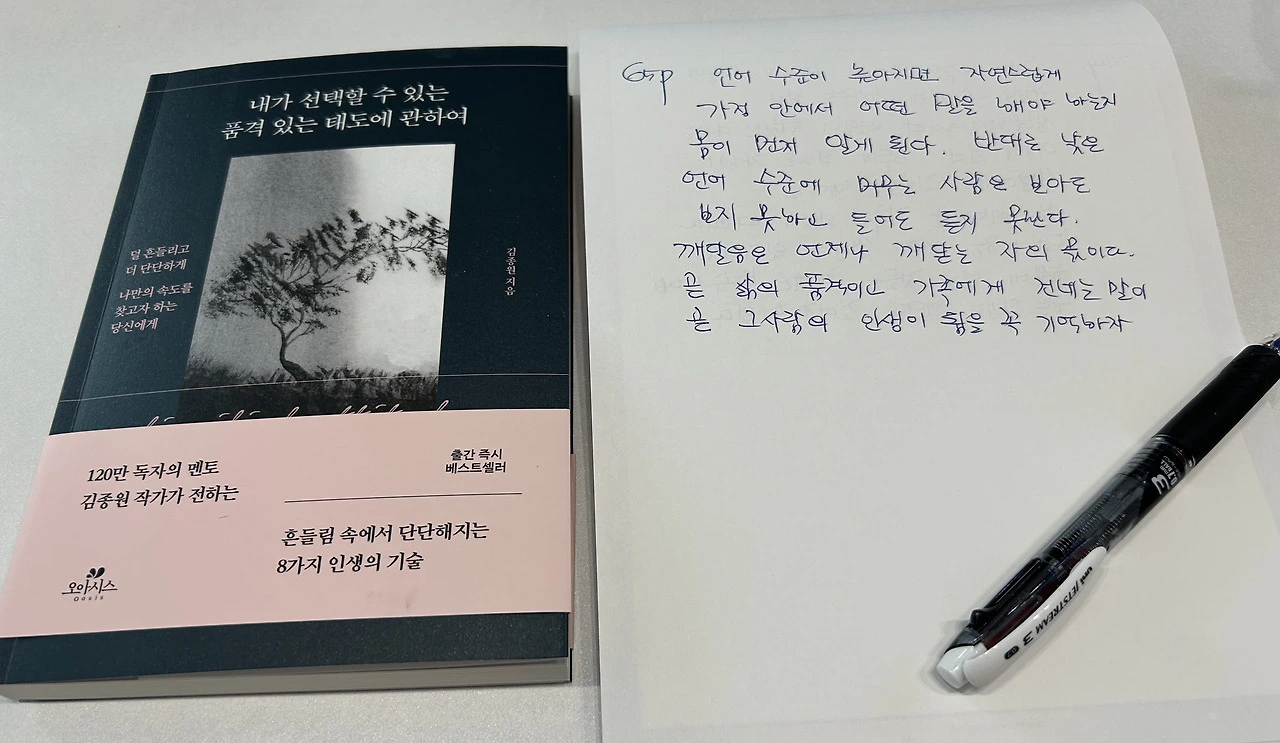 내가 선택할 수 있는
품격 있는 태도에 관하여
덜 흔들리고
더 단단하게
나만의 속도를
찾고자 하는
당신에게
김종원 지음
120만 독자의 멘토
김종원 작가가 전하는
출간 즉시
베스트셀러
흔들림 속에서 단단해지는
8가지 인생의 기술
오아시스
Oasis
언어 수준이 높아지면 자연스럽게
가정 안에서 어떤 말을 해야 하는지
몸이 먼저 알게 된다. 반대로 낮은
언어 수준에 머무는 사람은 보아도
보지 못하고 들어도 듣지 못한다.
깨달음은 언제나 깨닫는 자의 몫이다.
곧 삶의 품격이고 가족에게 건네는 말이
곧 그사람의 인생이 됨을 꼭 기억하자
uni JETSTREAM 3